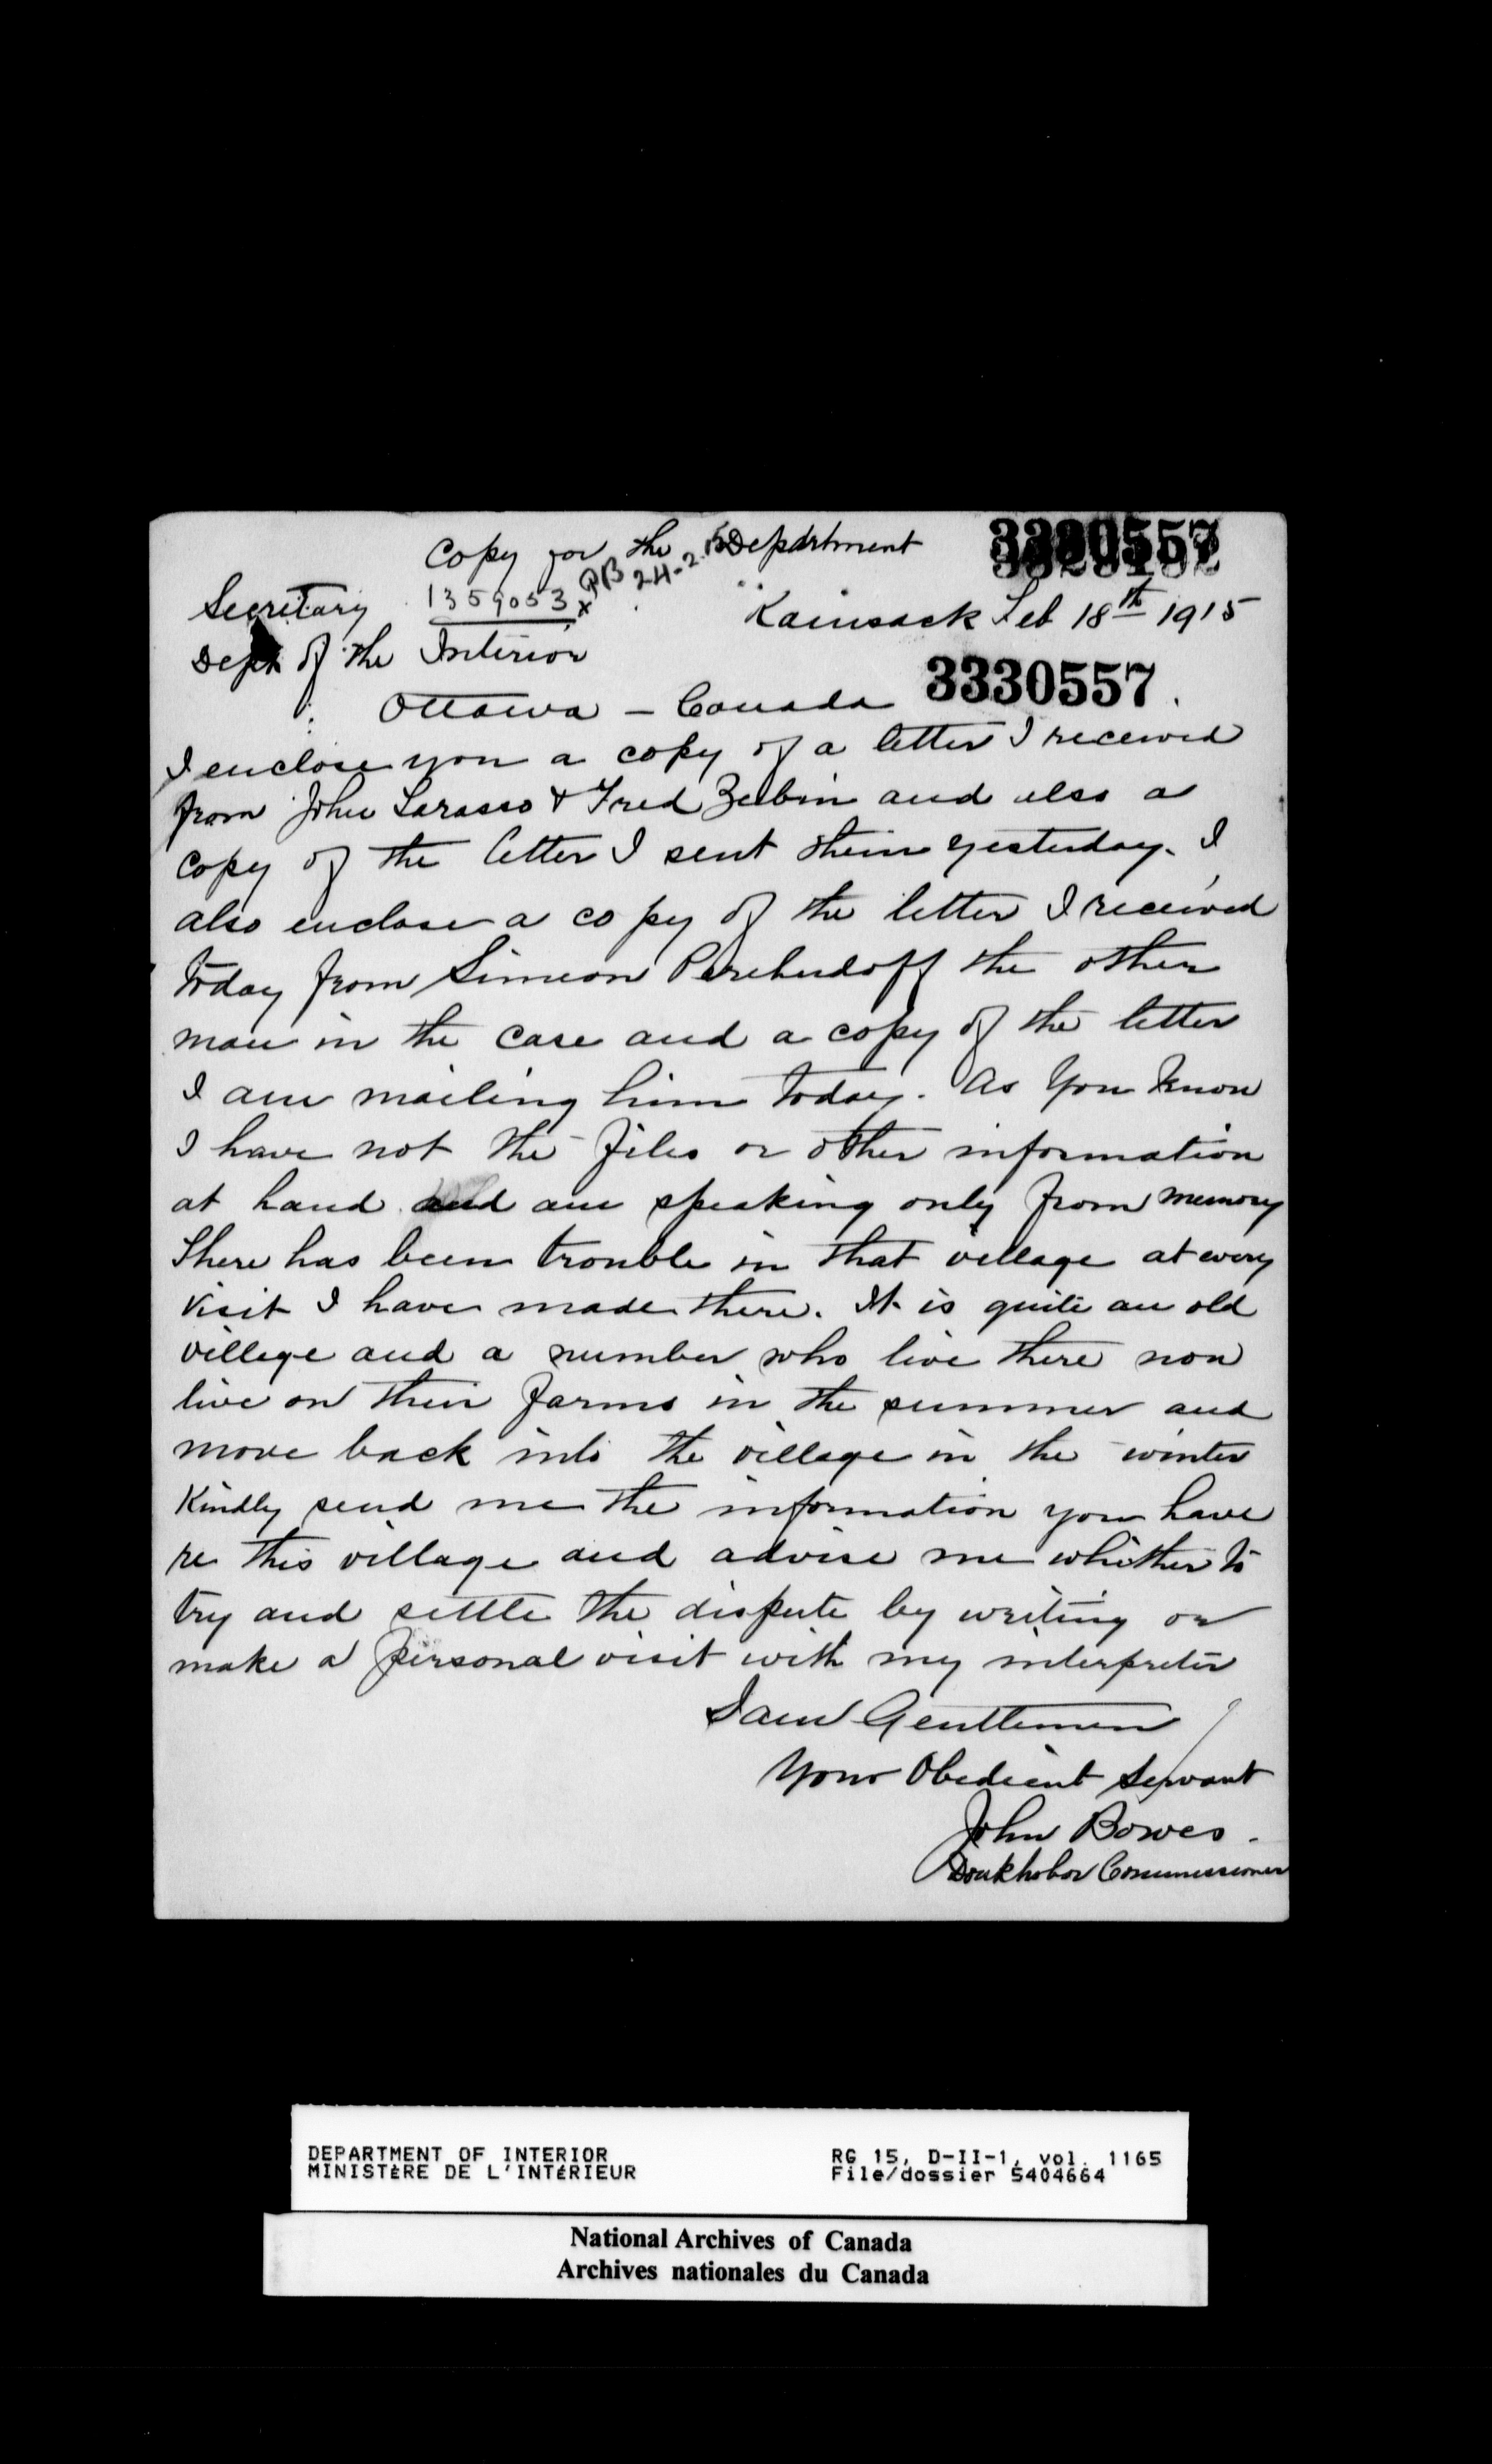 Copy for the Department
3330557
1359053
PB 24-2-15
Secretary
Kamsack Feb 18th 1915
Dept of the Interior
3330557
Ottawa - Canada
I enclose you a copy of a letter I received
from John Larasso & Fred Zeebin and also a
copy of the letter I sent them yesterday. I
also enclose a copy of the letter I received
today from Simeon Perehudoff the other
man in the case and a copy of the letter
I am mailing him today. As you know
I have not the files or other information
at hand and am speaking only from memory
There has been trouble in that village at every
visit I have made there. It is quite an old
village and a number who live there now
live on their farms in the summer and
move back into the village in the winter
Kindly send me the information you have
re this village and advise me whether to
try and settle the dispute by writing or
make a personal visit with my interpreter
I am Gentlemen
Your Obedient Servant
John Bowes.
Doukhobor Commissioner
DEPARTMENT OF INTERIOR
MINISTÈRE DE L'INTÉRIEUR
RG 15, D-II-1, vol. 1165
File/dossier 5404664
National Archives of Canada
Archives nationales du Canada